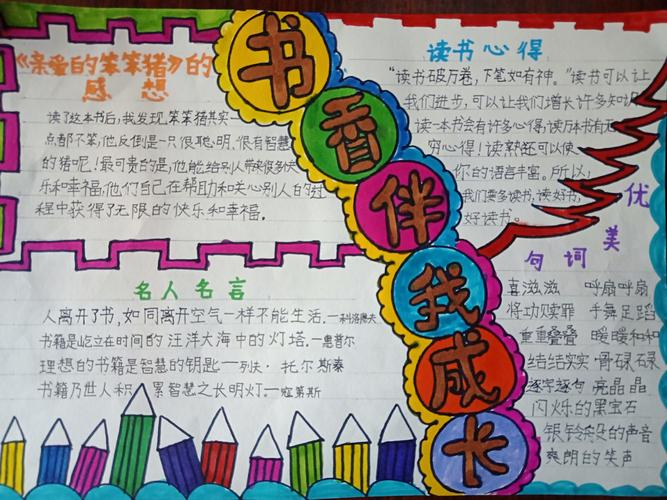 书香伴我成长
《亲爱的笨笨猪》的
感想
读了这本书后,我发现,笨笨猪其实一
点都不笨,他反倒是一只很聪明、很有智慧
的猪呢!最可贵的是,他能给别人带来很多快
乐和幸福,他们自己在帮助和关心别人的过
程中获得了无限的快乐和幸福。
读书心得
“读书破万卷,下笔如有神。”读书可以让
我们进步,可以让我们增长许多知识
读一本书会有许多心得,读万本书有无
穷心得!读熟还可以使
你的语言丰富。所以,
我们要多读书,读好书,
好读书。
名人名言
人离开了书,如同离开空气一样不能生活。—科洛廖夫
书籍是屹立在时间的汪洋大海中的灯塔。—惠普尔
理想的书籍是智慧的钥匙—列夫·托尔斯泰
书籍乃世人积累智慧之长明灯。—寇第斯
优
美
词
句
喜滋滋 呼扇呼扇
将功赎罪 手舞足蹈
重重叠叠 暖暖和和
结结实实 骨碌碌
逐字逐句 亮晶晶
闪烁的黑宝石
银铃般的声音
爽朗的笑声